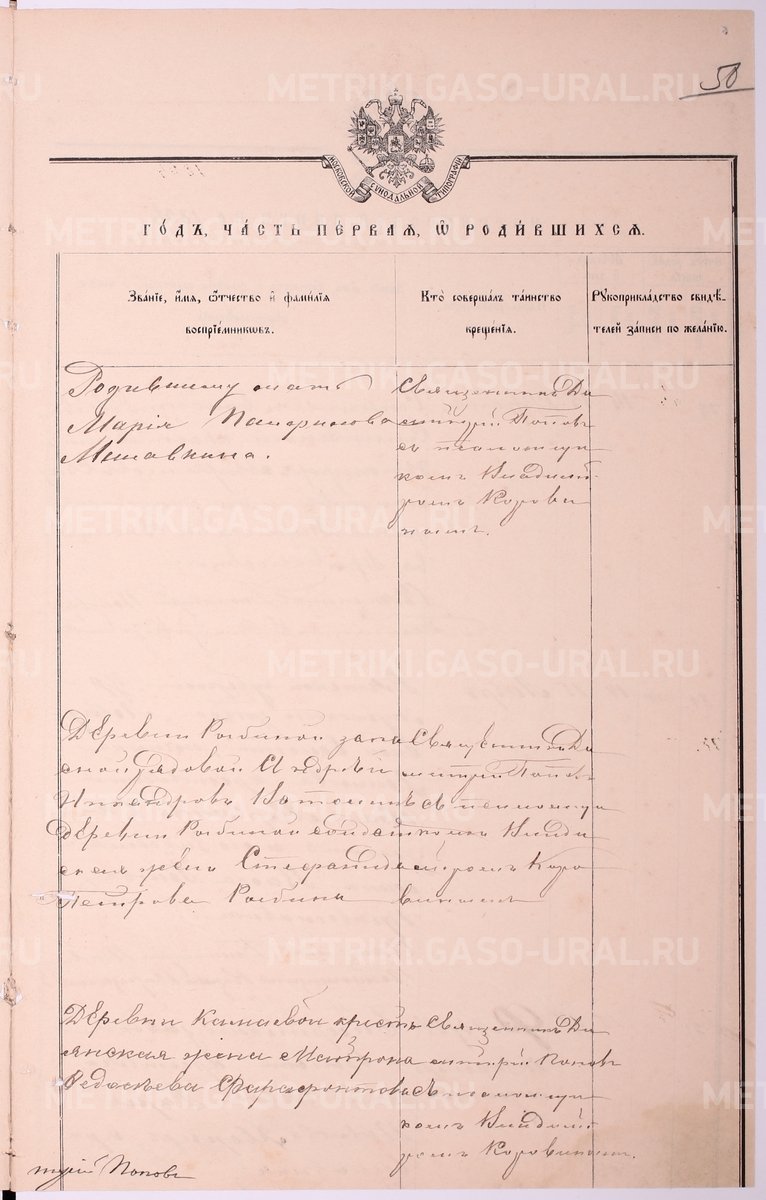 50
МОСКОВСКОЙ СѴНОДАЛЬНОЙ ТИПОГРАФІИ
ГОДЪ, ЧАСТЬ ПЕРВАЯ, Ѿ РОДИВШИХСЯ.
Званіе, имя, отчество и фамилія
воспріемниковъ.
Кто совершалъ таинство
крещенія.
Рукоприкладство свидѣ-
телей записи по желанію.
Родившему мать
Марія Панфилова
Священникъ Ди
митрій Поповъ
съ псаломщи
комъ Владими
ромъ Корови
нымъ.
Деревни Рыбиной запа
сной рядовой Андрей
деревни Рыбиной солдат
ская жена Стефанида
Петрова Рыбина
Священникъ Ди
митрій Поповъ
съ псаломщи
комъ Влади
миромъ Коро
винымъ
Деревни Камаевой кресть
янская жена Матрона
Ѳедосѣева Фарафонтова
Священникъ Ди
митрій Поповъ
съ псаломщи
комъ Владими
ромъ Коровинымъ.
трій Поповъ
METRIKI.GASO-URAL.RU